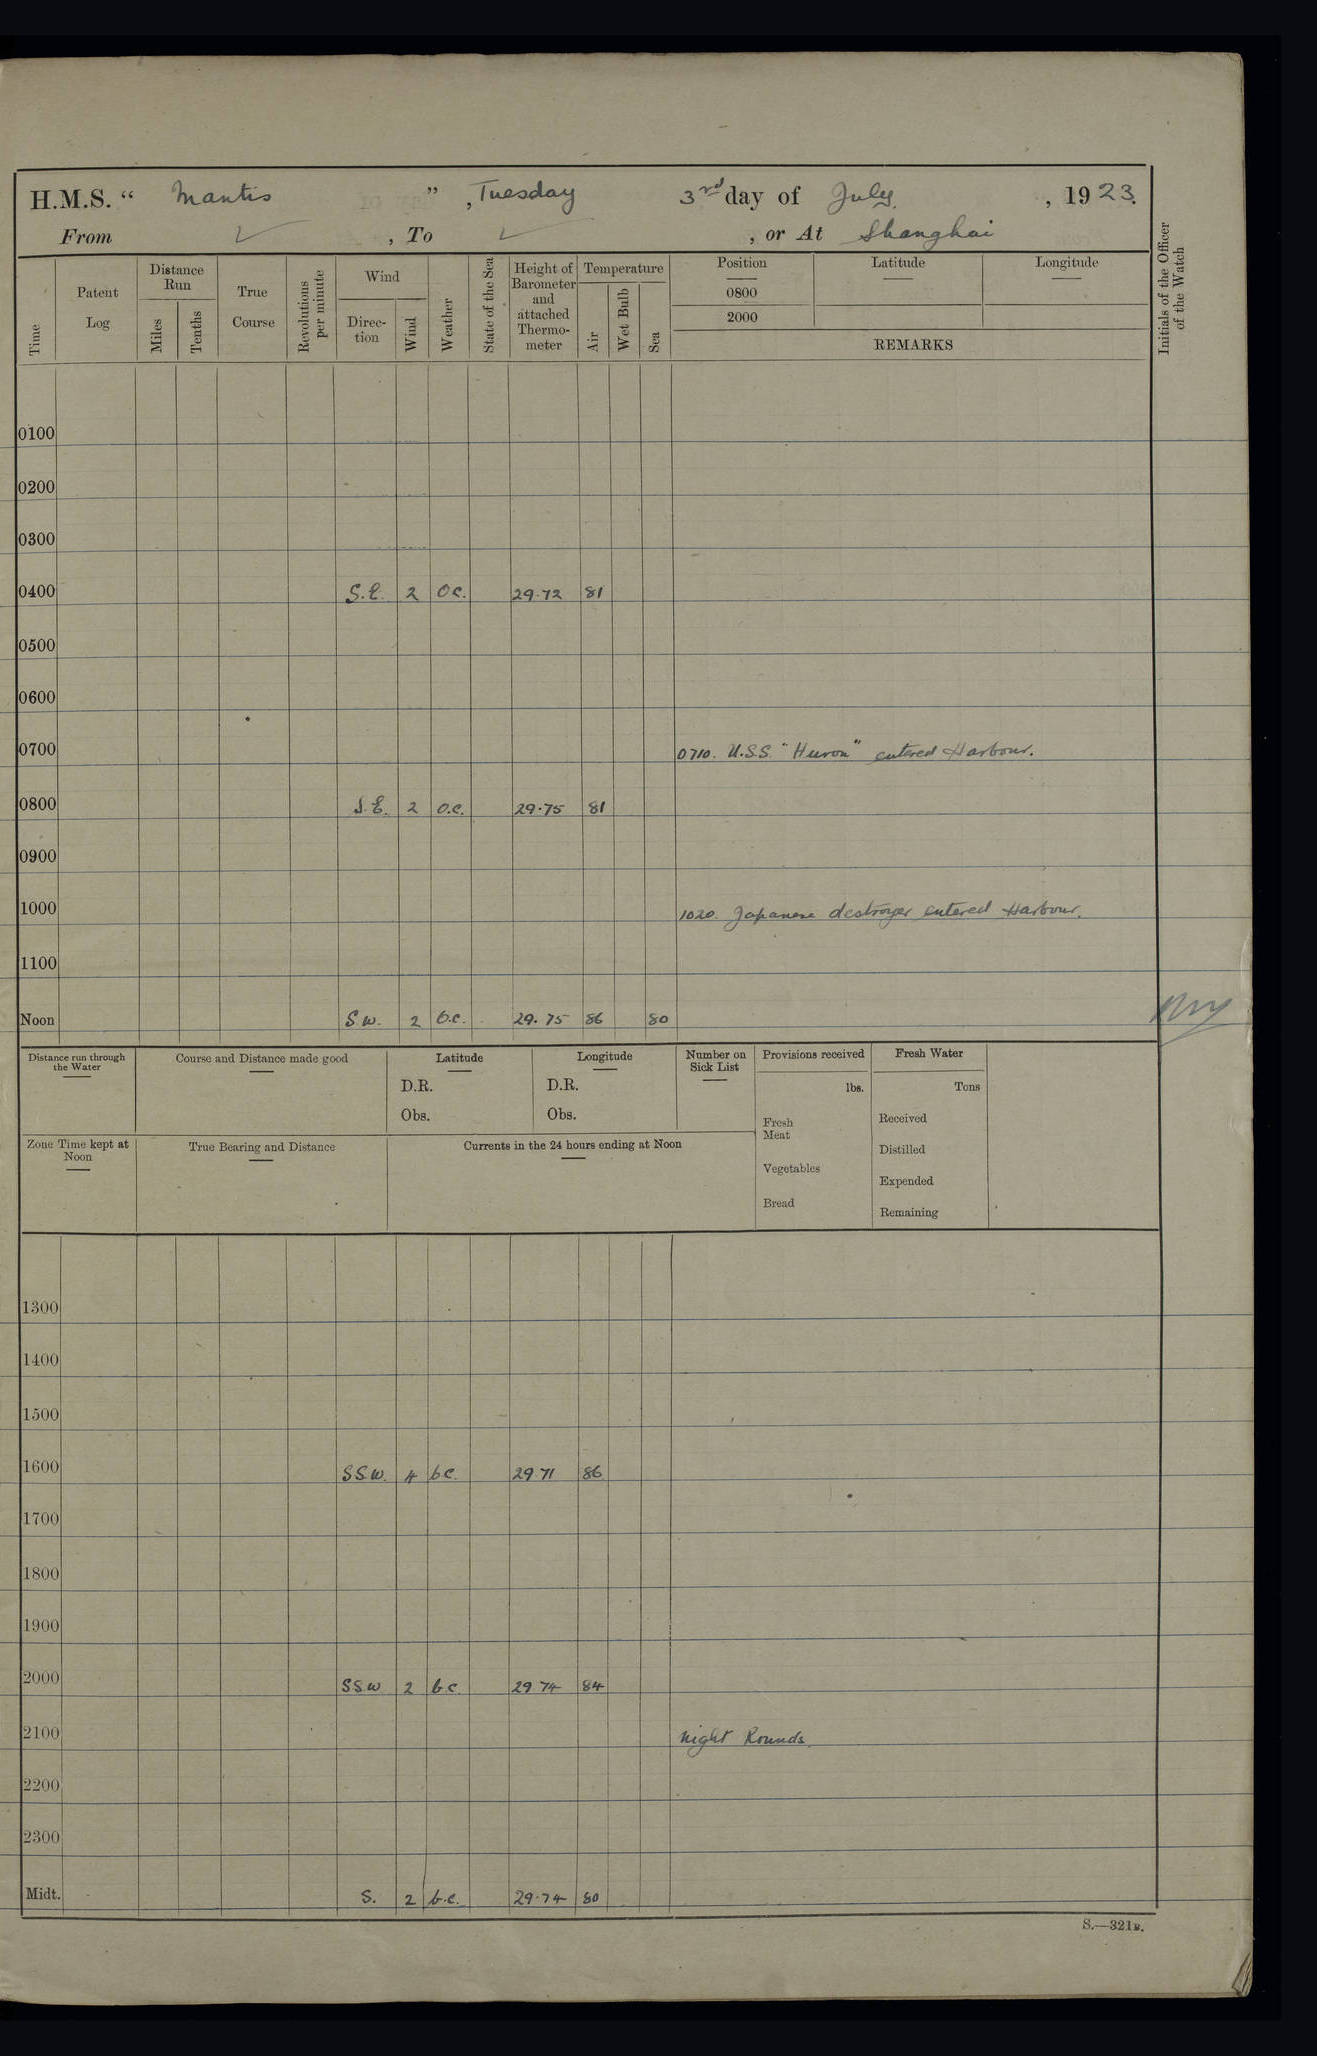 H.M.S. “ Mantis ” , Tuesday 3rd day of July. , 1923.
From ✓ , To ✓ , or At Shanghai
Time
Patent Log
Distance Run
Miles
Tenths
True Course
Revolutions per minute
Wind
Direc-tion
Wind
Weather
State of the Sea
Height of Barometer and attached Thermo-meter
Temperature
Air
Wet Bulb
Sea
Position Latitude Longitude
0800
2000
REMARKS
Initials of the Officer of the Watch
0100
0200
0300
0400 S.E. 2 O.C. 29.72 81
0500
0600
0700 0710. U.S.S. "Huron" entered Harbour.
0800 S.E. 2 O.C. 29.75 81
0900
1000 1020. Japanese destroyer entered Harbour.
1100
Noon S.W. 2 b.c. 29.75 86 80
Distance run through the Water
Course and Distance made good
Latitude
D.R.
Obs.
Longitude
D.R.
Obs.
Number on Sick List
Provisions received
lbs.
Fresh Meat
Vegetables
Bread
Fresh Water
Tons
Received
Distilled
Expended
Remaining
Zone Time kept at Noon
True Bearing and Distance
Currents in the 24 hours ending at Noon
1300
1400
1500
1600 S.S.W. 4 b c. 29.71 86
1700
1800
1900
2000 S.S.W 2 b.c. 29 74 84
2100 Night Rounds.
2200
2300
Midt. S. 2 b.c. 29.74 80
S.—321B.